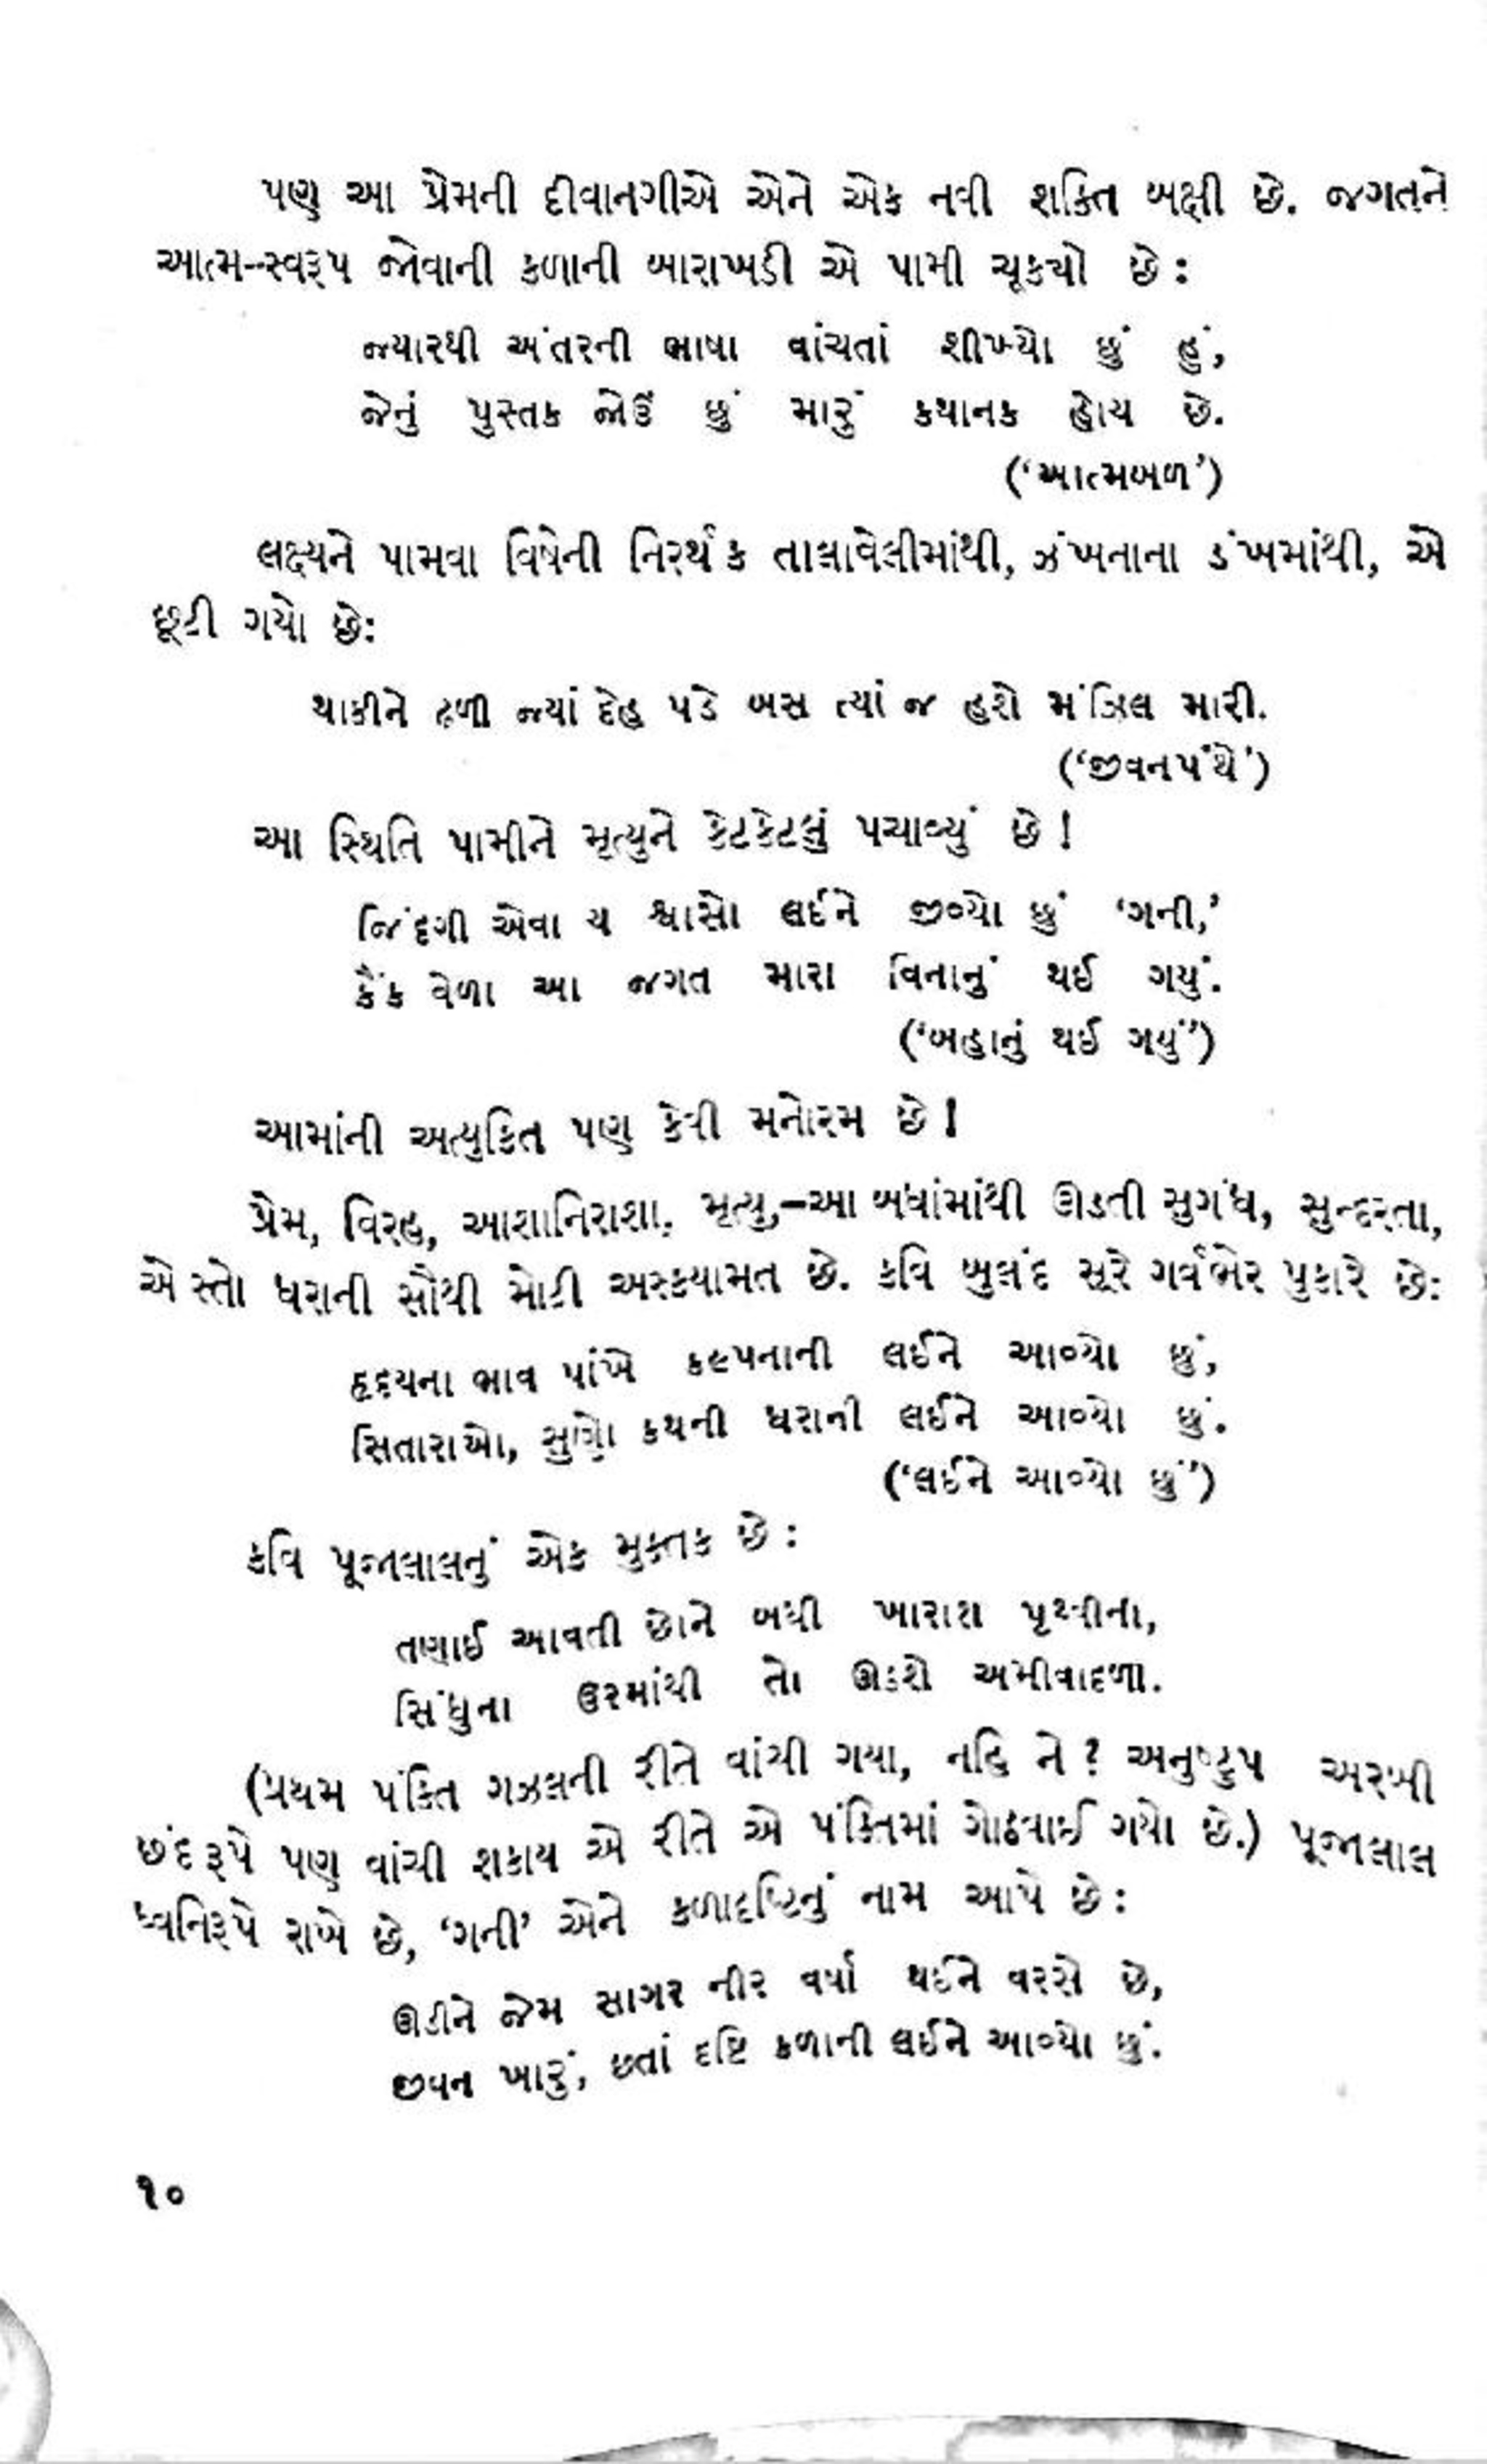 પણ આ પ્રેમની દીવાનગીએ એને એક નવી શક્તિ બક્ષી છે. જગતને
આત્મ-સ્વરૂપ જોવાની કળાની બારાખડી એ પામી ચૂકયો છે:
જ્યારથી અંતરની ભાષા વાંચતાં શીખ્યો છું હું,
જેનું પુસ્તક જોઉં છું મારું કથાનક હોય છે.
('આત્મબળ')
લક્ષ્યને પામવા વિષેની નિરર્થક તાલાવેલીમાંથી, ઝંખનાના ડંખમાંથી, એ
છૂટી ગયો છે:
થાકીને ઢળી જ્યાં દેહ પડે બસ ત્યાં જ હશે મંઝિલ મારી.
('જીવનપંથે')
આ સ્થિતિ પામીને મૃત્યુને કેટકેટલું પચાવ્યું છે!
જિંદગી એવા ય શ્વાસો લઈને જીવ્યો છું 'ગની,'
કૈંક વેળા આ જગત મારા વિનાનું થઈ ગયું.
('બહાનું થઈ ગયું')
આમાંની અત્યુકિત પણ કેવી મનોરમ છે!
પ્રેમ, વિરહ, આશાનિરાશા, મૃત્યુ,-આ બધાંમાંથી ઊડતી સુગંધ, સુન્દરતા,
એ સ્તો ધરાની સૌથી મોટી અસ્કયામત છે. કવિ બુલંદ સૂરે ગર્વભેર પુકારે છે:
હૃદયના ભાવ પાંખે કલ્પનાની લઈને આવ્યો છું,
સિતારાઓ, સુણો કથની ધરાની લઈને આવ્યો છું.
('લઈને આવ્યો છું')
કવિ પૂજાલાલનું એક મુક્તક છે:
તણાઈ આવતી છોને બધી ખારાશ પૃથ્વીના,
સિંધુના ઉરમાંથી તો ઊડશે અમીવાદળા.
(પ્રથમ પંક્તિ ગઝલની રીતે વાંચી ગયા, નહિ ને? અનુષ્ટુપ અરબી
છંદરૂપે પણ વાંચી શકાય એ રીતે એ પંક્તિમાં ગોઠવાઈ ગયો છે.) પૂજાલાલ
ધ્વનિરૂપે રાખે છે, 'ગની' એને કળાદૃષ્ટિનું નામ આપે છે:
ઊડીને જેમ સાગર નીર વર્ષા થઈને વરસે છે,
જીવન ખારું, છતાં દૃષ્ટિ કળાની લઈને આવ્યો છું.
૧૦